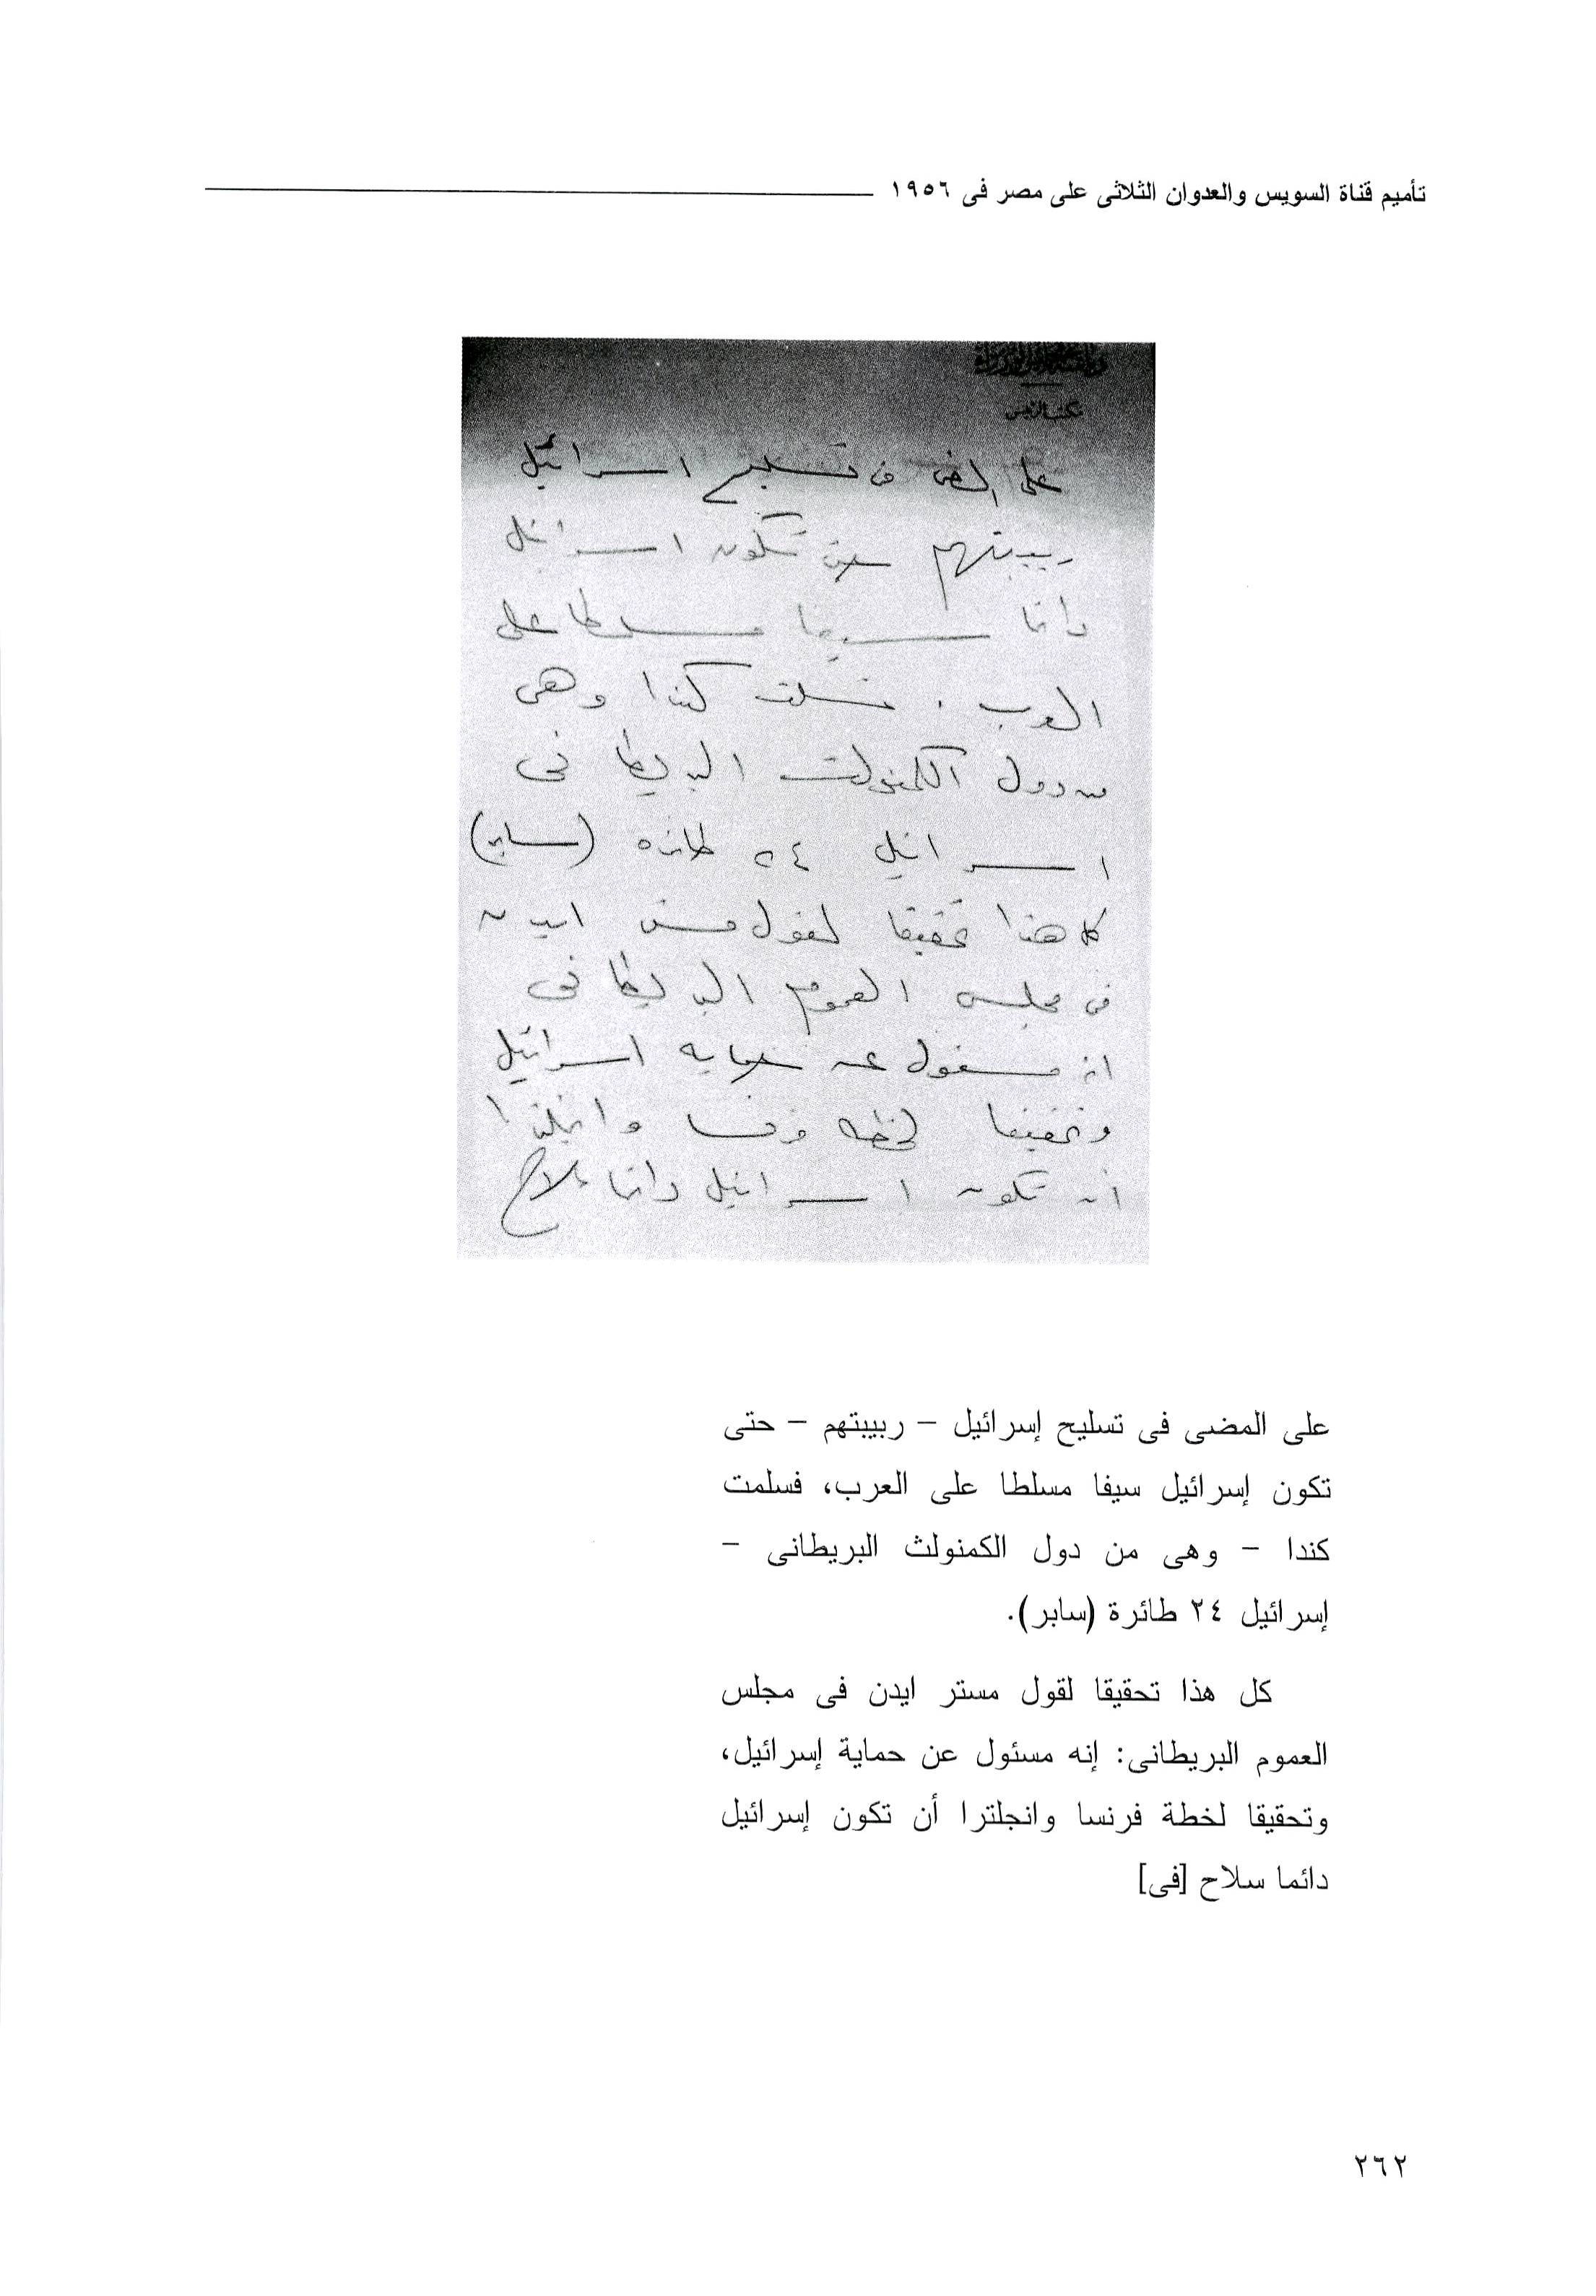 تأميم قناة السويس والعدوان الثلاثى على مصر فى ١٩٥٦
على المضى فى تسليح اسرائيل
ربيبتهم حتى تكون اسرائيل
دائما سيفا مسلطا على
العرب . فسلمت كندا وهى
من دول الكمنولث البريطانى
اسرائيل ٢٤ طائره (سابر)
كل هذا تحقيقا لقول مستر ايدن
فى مجلس العموم البريطانى
انه مسئول عن حمايه اسرائيل
وتحقيقا لخطه فرنسا وانجلترا
أن تكون اسرائيل دائما سلاح
على المضى فى تسليح إسرائيل – ربيبتهم – حتى
تكون إسرائيل سيفا مسلطا على العرب، فسلمت
كندا – وهى من دول الكمنولث البريطانى –
إسرائيل ٢٤ طائرة (سابر).
كل هذا تحقيقا لقول مستر ايدن فى مجلس
العموم البريطانى: إنه مسئول عن حماية إسرائيل،
وتحقيقا لخطة فرنسا وانجلترا أن تكون إسرائيل
دائما سلاح [فى]
٢٦٢